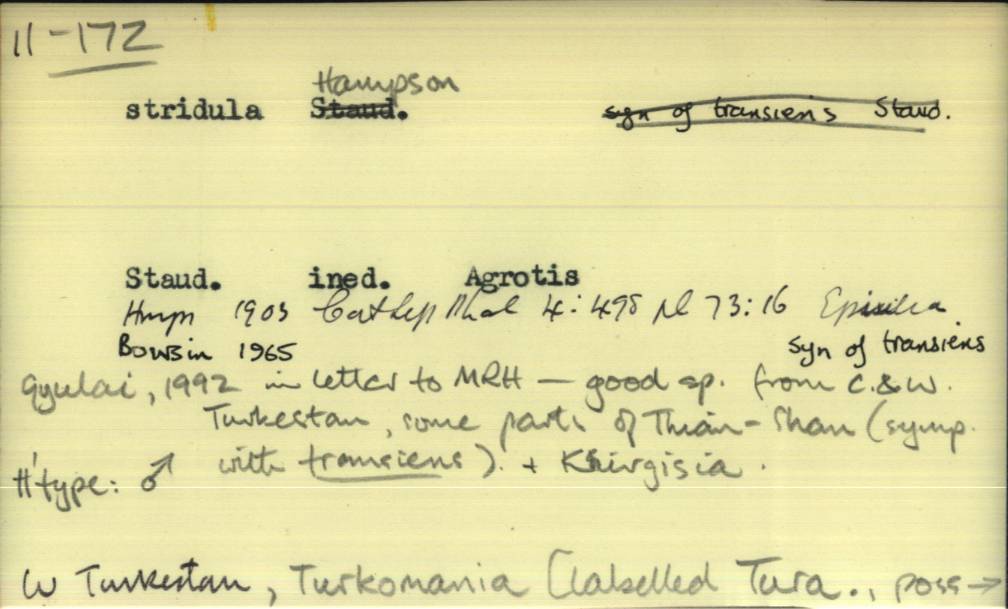 11-172
Hampson
stridula Staud. syn of transiens Staud.
Staud. ined. Agrotis
Hmpn 1903 Cat Lep Phal 4: 498 pl 73:16 Episilia
Boursin 1965 syn of transiens
Gyulai, 1992 in letter to MRH — good sp. from C. & W.
Turkestan, some parts of Thian-Shan (symp.
with transiens). + Khirgisia.
H'type: ♂
W Turkestan, Turkomania [labelled Tura., poss →